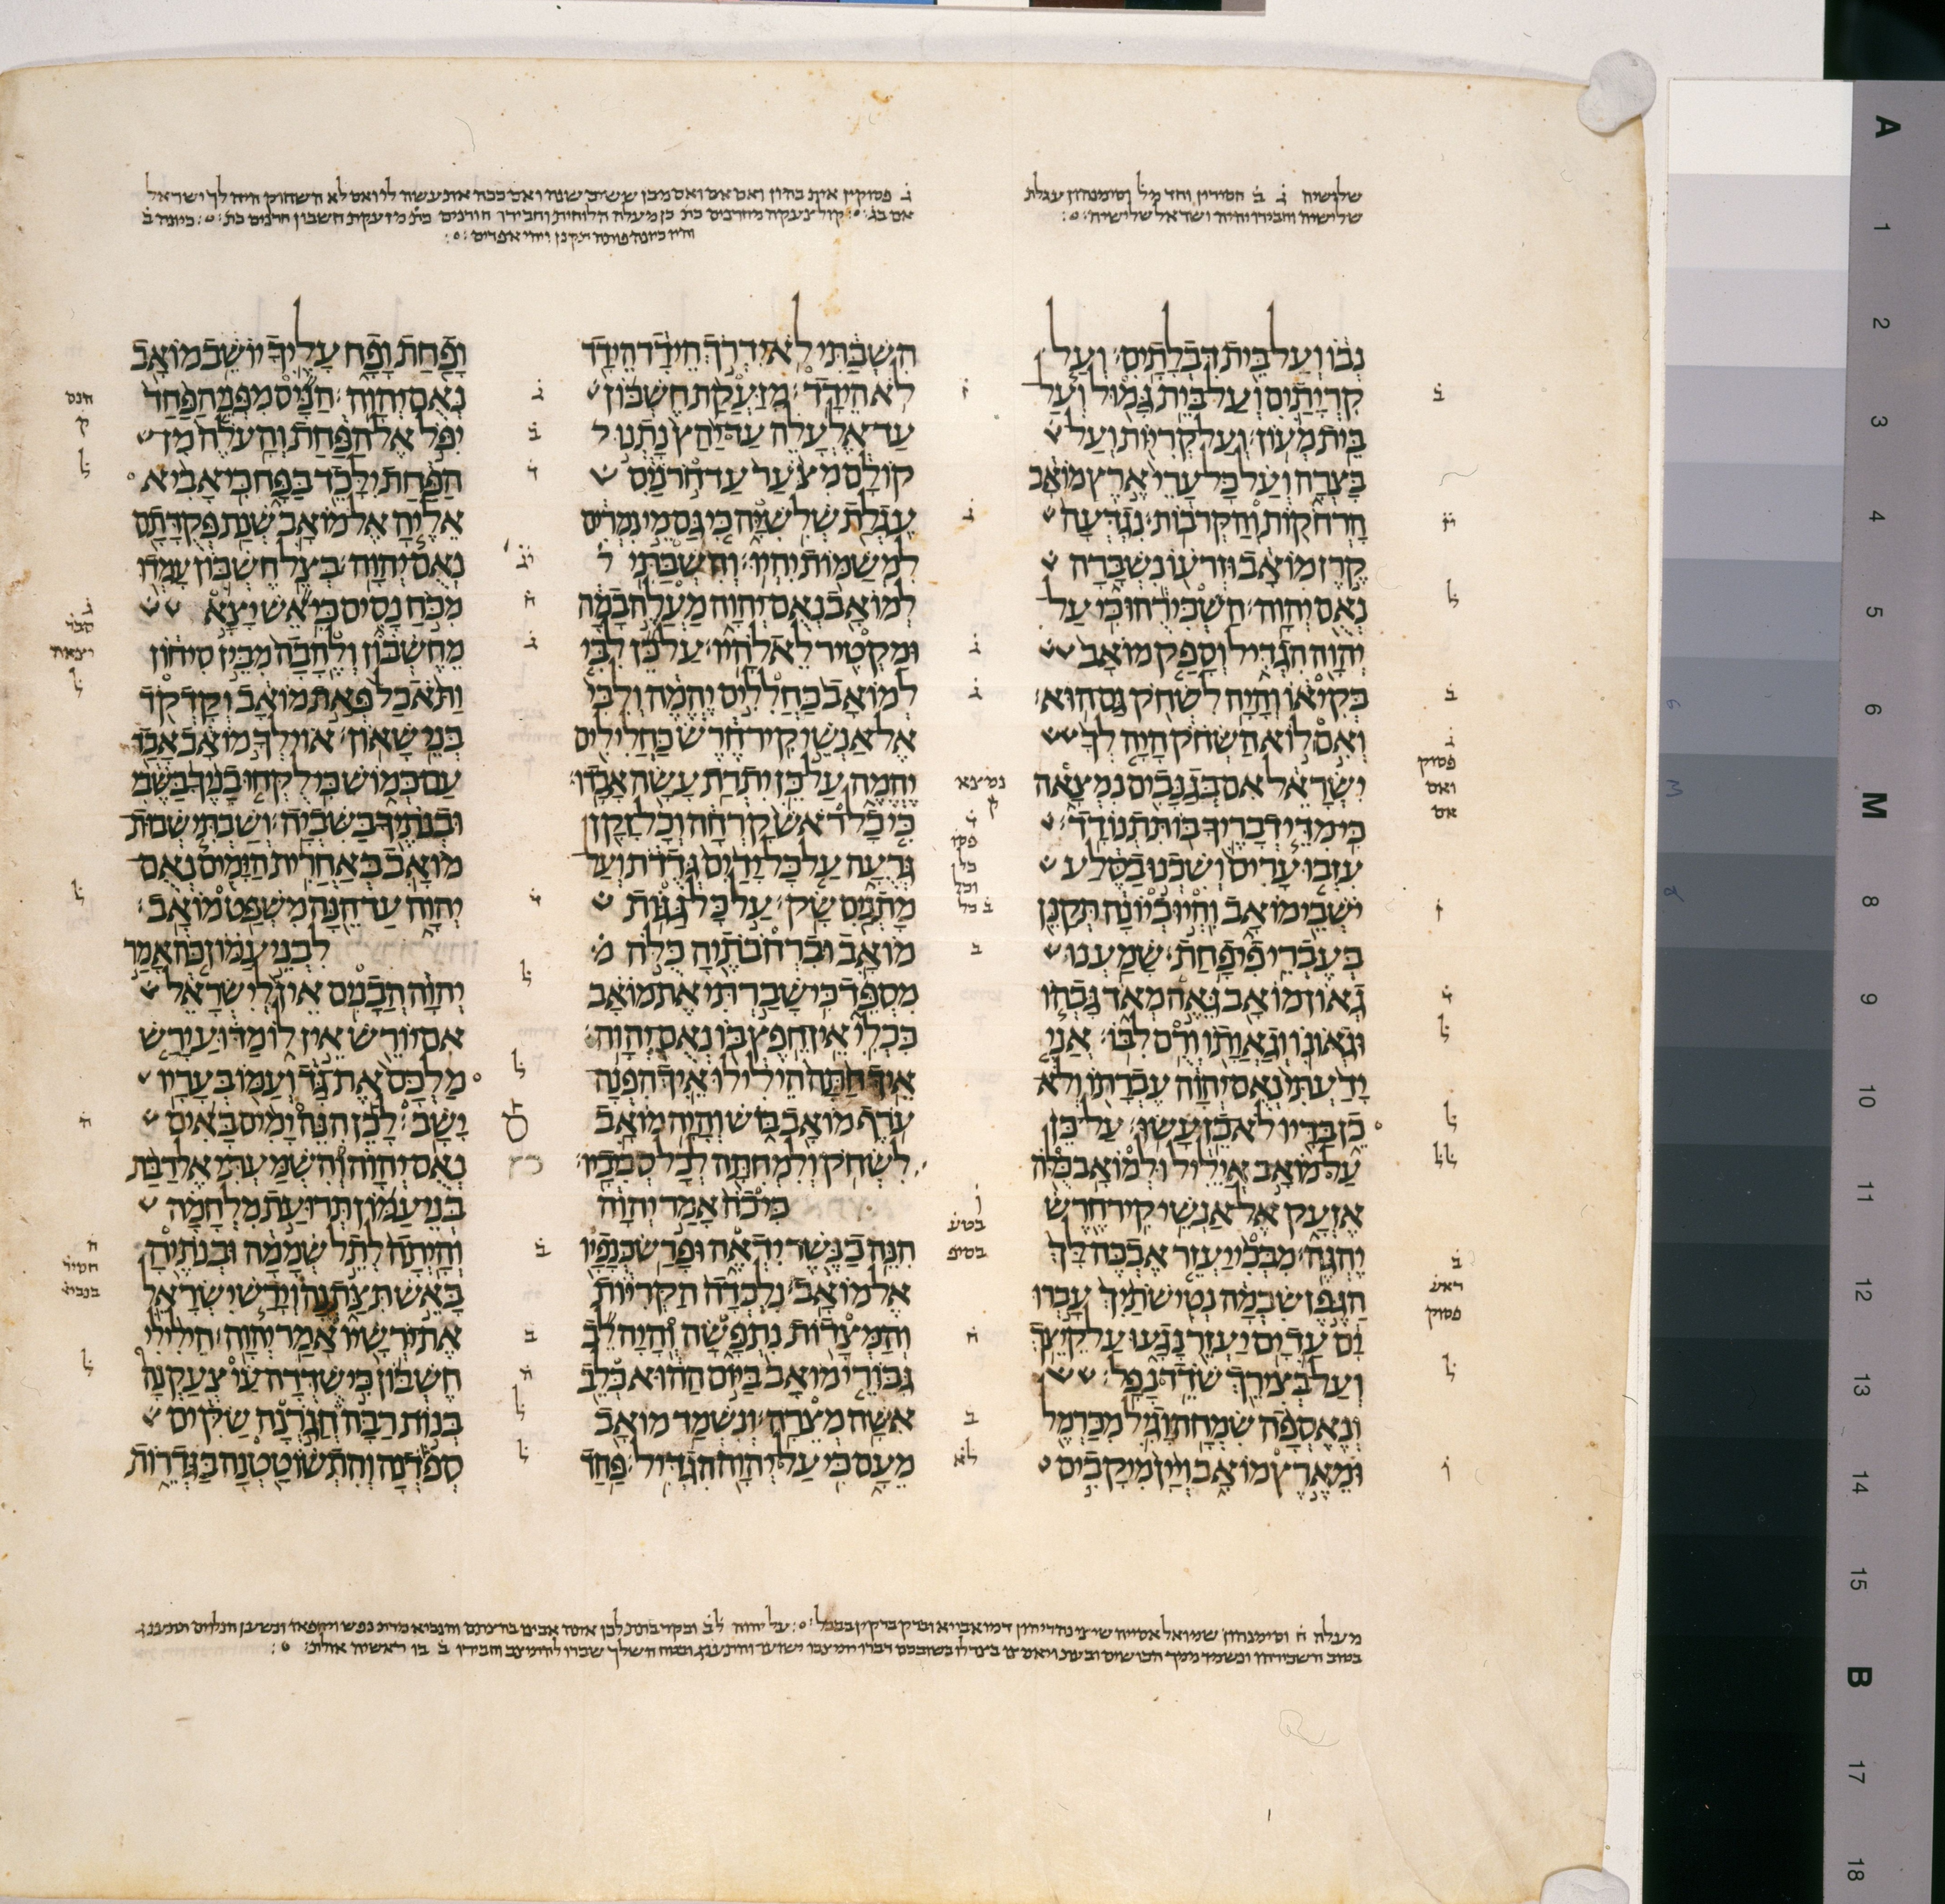 שלושיה ג ב חסירין וחד מל וסימנהון עגלת
שלישיה וחבירו יהיה ישראל שלישיה
ג פסוקין אית בהון ואם אם ואם מבן ששים שנה ואם ככה את עשה לי ואם לא השחוק היה לך ישראל
נְבוֹ וְעַל בֵּית דִּבְלָתָיִם׃ וְעַל
קִרְיָתַיִם וְעַל בֵּית גָּמוּל וְעַל
בֵּית מְעוֹן׃ וְעַל קְרִיּוֹת וְעַל
בָּצְרָה וְעַל כָּל עָרֵי אֶרֶץ מוֹאָב
הָרְחֹקוֹת וְהַקְּרֹבוֹת׃ נִגְדְּעָה
קֶרֶן מוֹאָב וּזְרֹעוֹ נִשְׁבָּרָה
נְאֻם יְהוָה׃ הַשְׁכִּירֻהוּ כִּי עַל
יְהוָה הִגְדִּיל וְסָפַק מוֹאָב
בְּקִיאוֹ וְהָיָה לִשְׂחֹק גַּם הוּא׃
וְאִם לוֹא הַשְּׂחֹק הָיָה לְךָ
יִשְׂרָאֵל אִם בְּגַנָּבִים נִמְצָאָה
כִּי מִדֵּי דְבָרֶיךָ בּוֹ תִּתְנוֹדָד׃
עִזְבוּ עָרִים וְשִׁכְנוּ בַּסֶּלַע
יֹשְׁבֵי מוֹאָב וִהְיוּ כְיוֹנָה תְּקַנֵּן
בְּעֶבְרֵי פִי פָחַת׃ שָׁמַעְנוּ
גְאוֹן מוֹאָב גֵּאֶה מְאֹד גָּבְהוֹ
וּגְאוֹנוֹ וְגַאֲוָתוֹ וְרֻם לִבּוֹ׃ אֲנִי
יָדַעְתִּי נְאֻם יְהוָה עֶבְרָתוֹ וְלֹא
כֵן בַּדָּיו לֹא כֵן עָשׂוּ׃ עַל כֵּן
עַל מוֹאָב אֲיֵלִיל וּלְמוֹאָב כֻּלֹּה
אֶזְעָק אֶל אַנְשֵׁי קִיר חֶרֶשׂ
יֶהְגֶּה׃ מִבְּכִי יַעְזֵר אֶבְכֶּה לָּךְ
הַגֶּפֶן שִׂבְמָה נְטִישֹׁתַיִךְ עָבְרוּ
יָם עַד יָם יַעְזֵר נָגָעוּ עַל קֵיצֵךְ
וְעַל בְּצִירֵךְ שֹׁדֵד נָפָל׃
וְנֶאֶסְפָה שִׂמְחָה וָגִיל מִכַּרְמֶל
וּמֵאֶרֶץ מוֹאָב וְיַיִן מִיקָבִים
הִשְׁבַּתִּי לֹא יִדְרֹךְ הֵידָד הֵידָד
לֹא הֵידָד׃ מִזַּעֲקַת חֶשְׁבּוֹן
עַד אֶלְעָלֵה עַד יַהַץ נָתְנוּ
קוֹלָם מִצֹּעַר עַד חֹרֹנַיִם
עֶגְלַת שְׁלִשִׁיָּה כִּי גַּם מֵי נִמְרִים
לִמְשַׁמּוֹת יִהְיוּ׃ וְהִשְׁבַּתִּי
לְמוֹאָב נְאֻם יְהוָה מַעֲלֶה בָמָה
וּמַקְטִיר לֵאלֹהָיו׃ עַל כֵּן לִבִּי
לְמוֹאָב כַּחֲלִלִים יֶהֱמֶה וְלִבִּי
אֶל אַנְשֵׁי קִיר חֶרֶשׂ כַּחֲלִילִים
יֶהֱמֶה עַל כֵּן יִתְרַת עָשָׂה אָבָדוּ׃
כִּי כָל רֹאשׁ קָרְחָה וְכָל זָקָן
גְּרֻעָה עַל כָּל יָדַיִם גְּדֻדֹת וְעַל
מָתְנַיִם שָׂק׃ עַל כָּל גַּגּוֹת
מוֹאָב וּבִרְחֹבֹתֶיהָ כֻּלֹּה
מִסְפֵּד כִּי שָׁבַרְתִּי אֶת מוֹאָב
כִּכְלִי אֵין חֵפֶץ בּוֹ נְאֻם יְהוָה׃
אֵיךְ חַתָּה הֵילִילוּ אֵיךְ הִפְנָה
עֹרֶף מוֹאָב בּוֹשׁ וְהָיָה מוֹאָב
לִשְׂחֹק וְלִמְחִתָּה לְכָל סְבִיבָיו׃
כִּי כֹה אָמַר יְהוָה
הִנֵּה כַנֶּשֶׁר יִדְאֶה וּפָרַשׂ כְּנָפָיו
אֶל מוֹאָב׃ נִלְכְּדָה הַקְּרִיּוֹת
וְהַמְּצָדוֹת נִתְפָּשָׂה וְהָיָה לֵב
גִּבּוֹרֵי מוֹאָב בַּיּוֹם הַהוּא כְּלֵב
אִשָּׁה מְצֵרָה׃ וְנִשְׁמַד מוֹאָב
מֵעָם כִּי עַל יְהוָה הִגְדִּיל׃ פַּחַד
וָפַחַת וָפָח עָלֶיךָ יוֹשֵׁב מוֹאָב
נְאֻם יְהוָה׃ הַנָּיס מִפְּנֵי הַפַּחַד
יִפֹּל אֶל הַפַּחַת וְהָעֹלֶה מִן
הַפַּחַת יִלָּכֵד בַּפָּח כִּי אָבִיא
אֵלֶיהָ אֶל מוֹאָב שְׁנַת פְּקֻדָּתָם
נְאֻם יְהוָה׃ בְּצֵל חֶשְׁבּוֹן עָמְדוּ
מִכֹּחַ נָסִים כִּי אֵשׁ יָצָא
מֵחֶשְׁבּוֹן וְלֶהָבָה מִבֵּין סִיחוֹן
וַתֹּאכַל פְּאַת מוֹאָב וְקָדְקֹד
בְּנֵי שָׁאוֹן׃ אוֹי לְךָ מוֹאָב אָבַד
עַם כְּמוֹשׁ כִּי לֻקְּחוּ בָנֶיךָ בַּשֶּׁבִי
וּבְנֹתֶיךָ בַּשִּׁבְיָה׃ וְשַׁבְתִּי שְׁבוּת
מוֹאָב בְּאַחֲרִית הַיָּמִים נְאֻם
יְהוָה עַד הֵנָּה מִשְׁפַּט מוֹאָב׃
לִבְנֵי עַמּוֹן כֹּה אָמַר
יְהוָה הֲבָנִים אֵין לְיִשְׂרָאֵל
אִם יוֹרֵשׁ אֵין לוֹ מַדּוּעַ יָרַשׁ
מַלְכָּם אֶת גָּד וְעַמּוֹ בְּעָרָיו
יָשָׁב׃ לָכֵן הִנֵּה יָמִים בָּאִים
נְאֻם יְהוָה וְהִשְׁמַעְתִּי אֶל רַבַּת
בְּנֵי עַמּוֹן תְּרוּעַת מִלְחָמָה
וְהָיְתָה לְתֵל שְׁמָמָה וּבְנֹתֶיהָ
בָּאֵשׁ תִּצַּתְנָה וְיָרַשׁ יִשְׂרָאֵל
אֶת יֹרְשָׁיו אָמַר יְהוָה׃ הֵילִילִי
חֶשְׁבּוֹן כִּי שֻׁדְּדָה עַי צְעַקְנָה
בְּנוֹת רַבָּה חֲגֹרְנָה שַׂקִּים
סְפֹדְנָה וְהִתְשׁוֹטַטְנָה בַּגְּדֵרוֹת